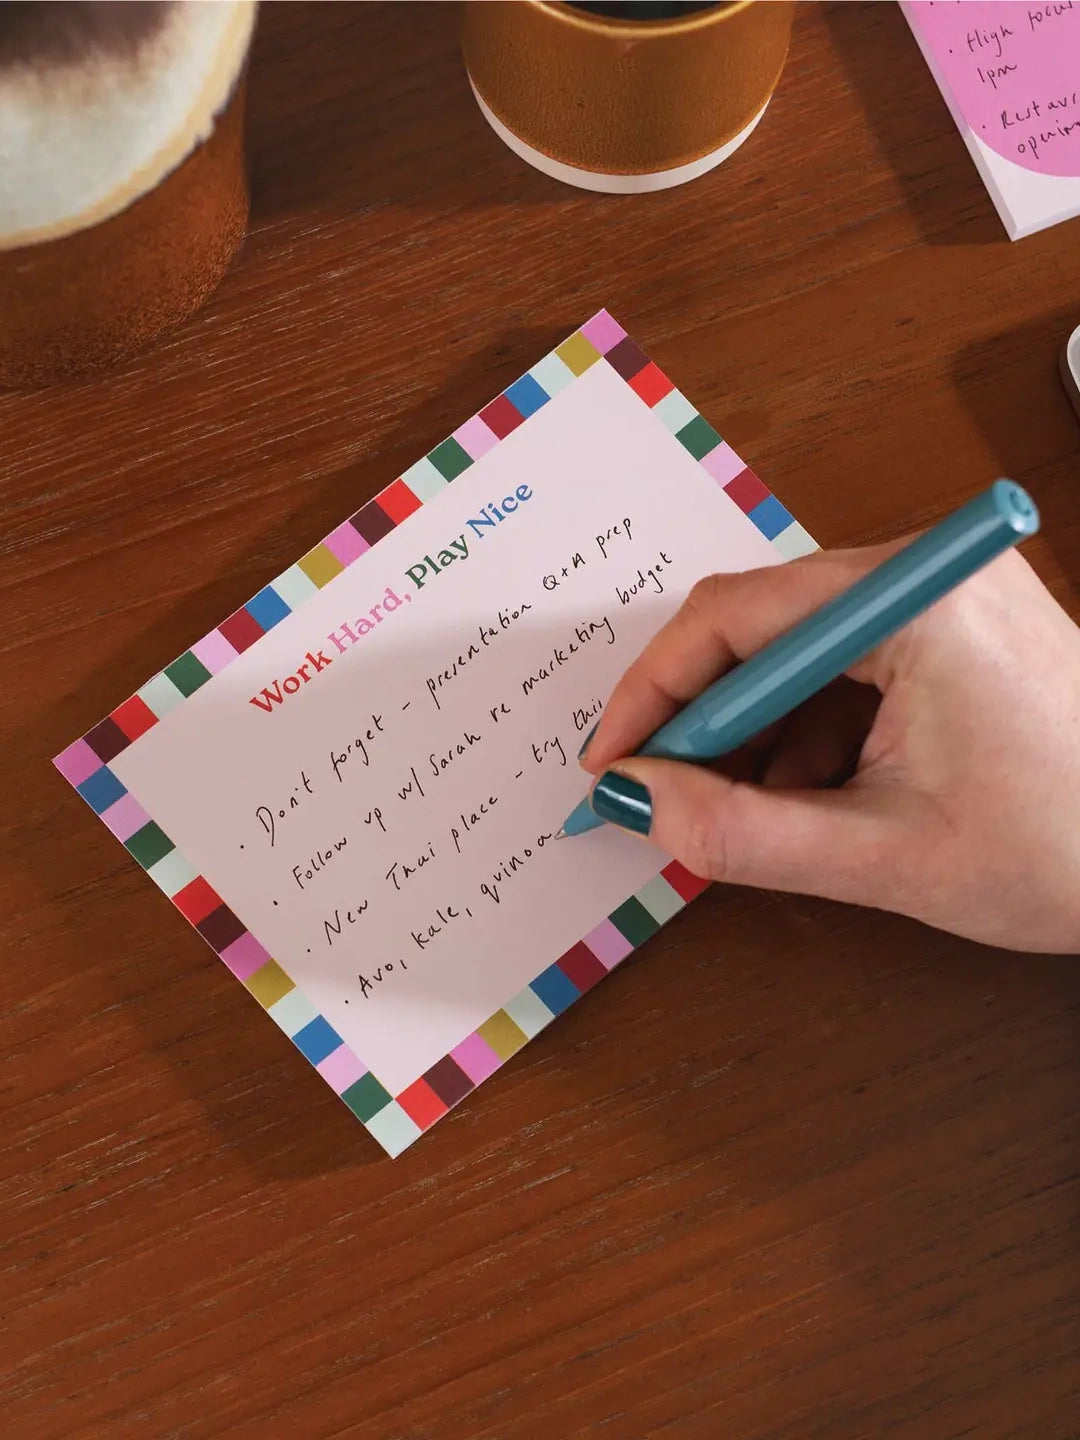 Work Hard, Play Nice
· Don't forget - presentation Q+A prep
· Follow up w/ Sarah re marketing budget
· New Thai place - try this
· Avo, kale, quinoa
· High focus
1pm
·